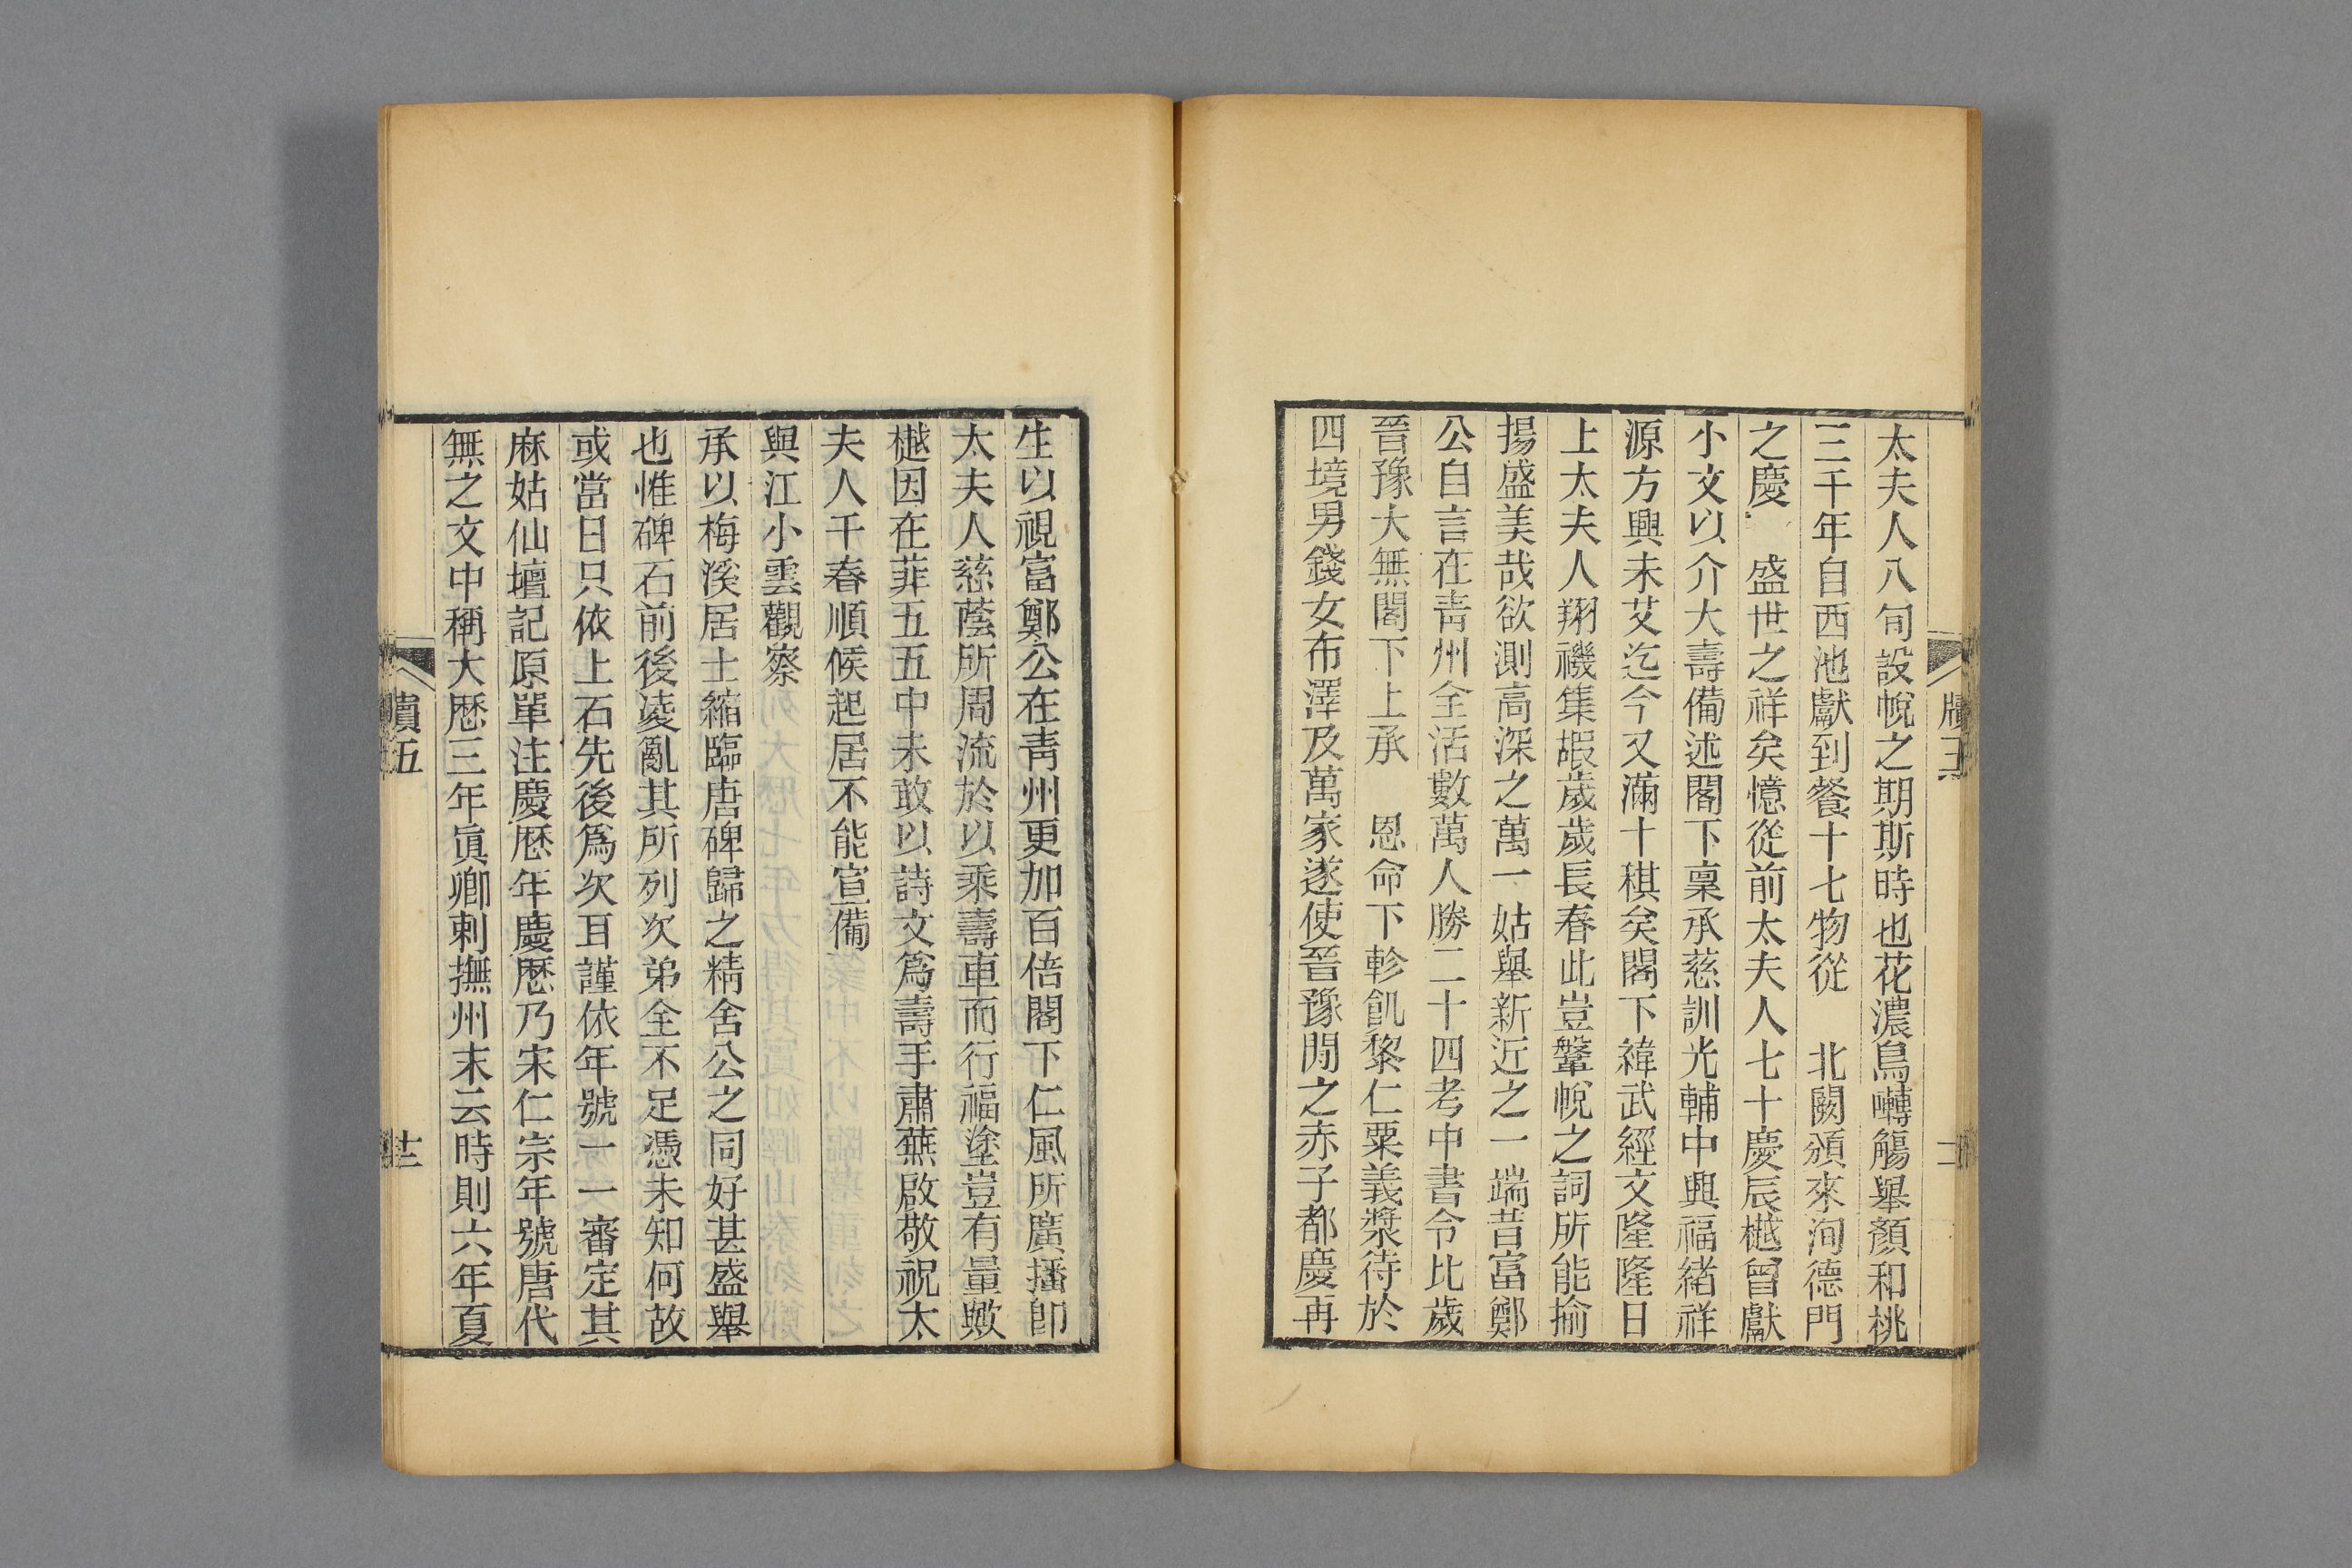 太夫人八旬設帨之期斯時也花濃鳥囀觴舉顏和桃
三千年自西池獻到餐十七物從　北闕頒來洵德門
之慶　盛世之祥矣憶從前太夫人七十慶辰樾曾獻
小文以介大壽備述閣下稟承慈訓光輔中興福緒祥
源方興未艾迄今又滿十稘矣閣下緯武經文隆隆日
上太夫人翔禨集嘏歲歲長春此豈鞶帨之詞所能揄
揚盛美哉欲測高深之萬一姑舉新近之一端昔富鄭
公自言在青州全活數萬人勝二十四考中書令比歲
晉豫大無閣下上承　恩命下軫飢黎仁粟義漿待於
四境男錢女布澤及萬家遂使晉豫閒之赤子都慶再
生以視富鄭公在青州更加百倍閣下仁風所廣播卽
太夫人慈蔭所周流於以乘壽車而行福塗豈有量歟
樾因在菲五五中未敢以詩文爲壽手肅蕪啟敬祝太
夫人千春順候起居不能宣備
與江小雲觀察
承以梅溪居士縮臨唐碑歸之精舍公之同好甚盛舉
也惟碑石前後淩亂其所列次弟全不足憑未知何故
或當日只依上石先後爲次耳謹依年號一一審定其
麻姑仙壇記原單注慶歷年慶歷乃宋仁宗年號唐代
無之文中稱大歷三年眞卿刺撫州末云時則六年夏
牘五
十二